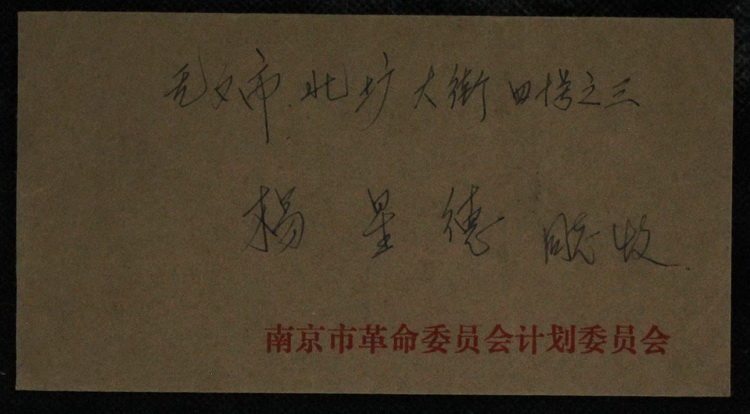 大街四号之三
杨星德 同志收
南京市革命委员会计划委员会